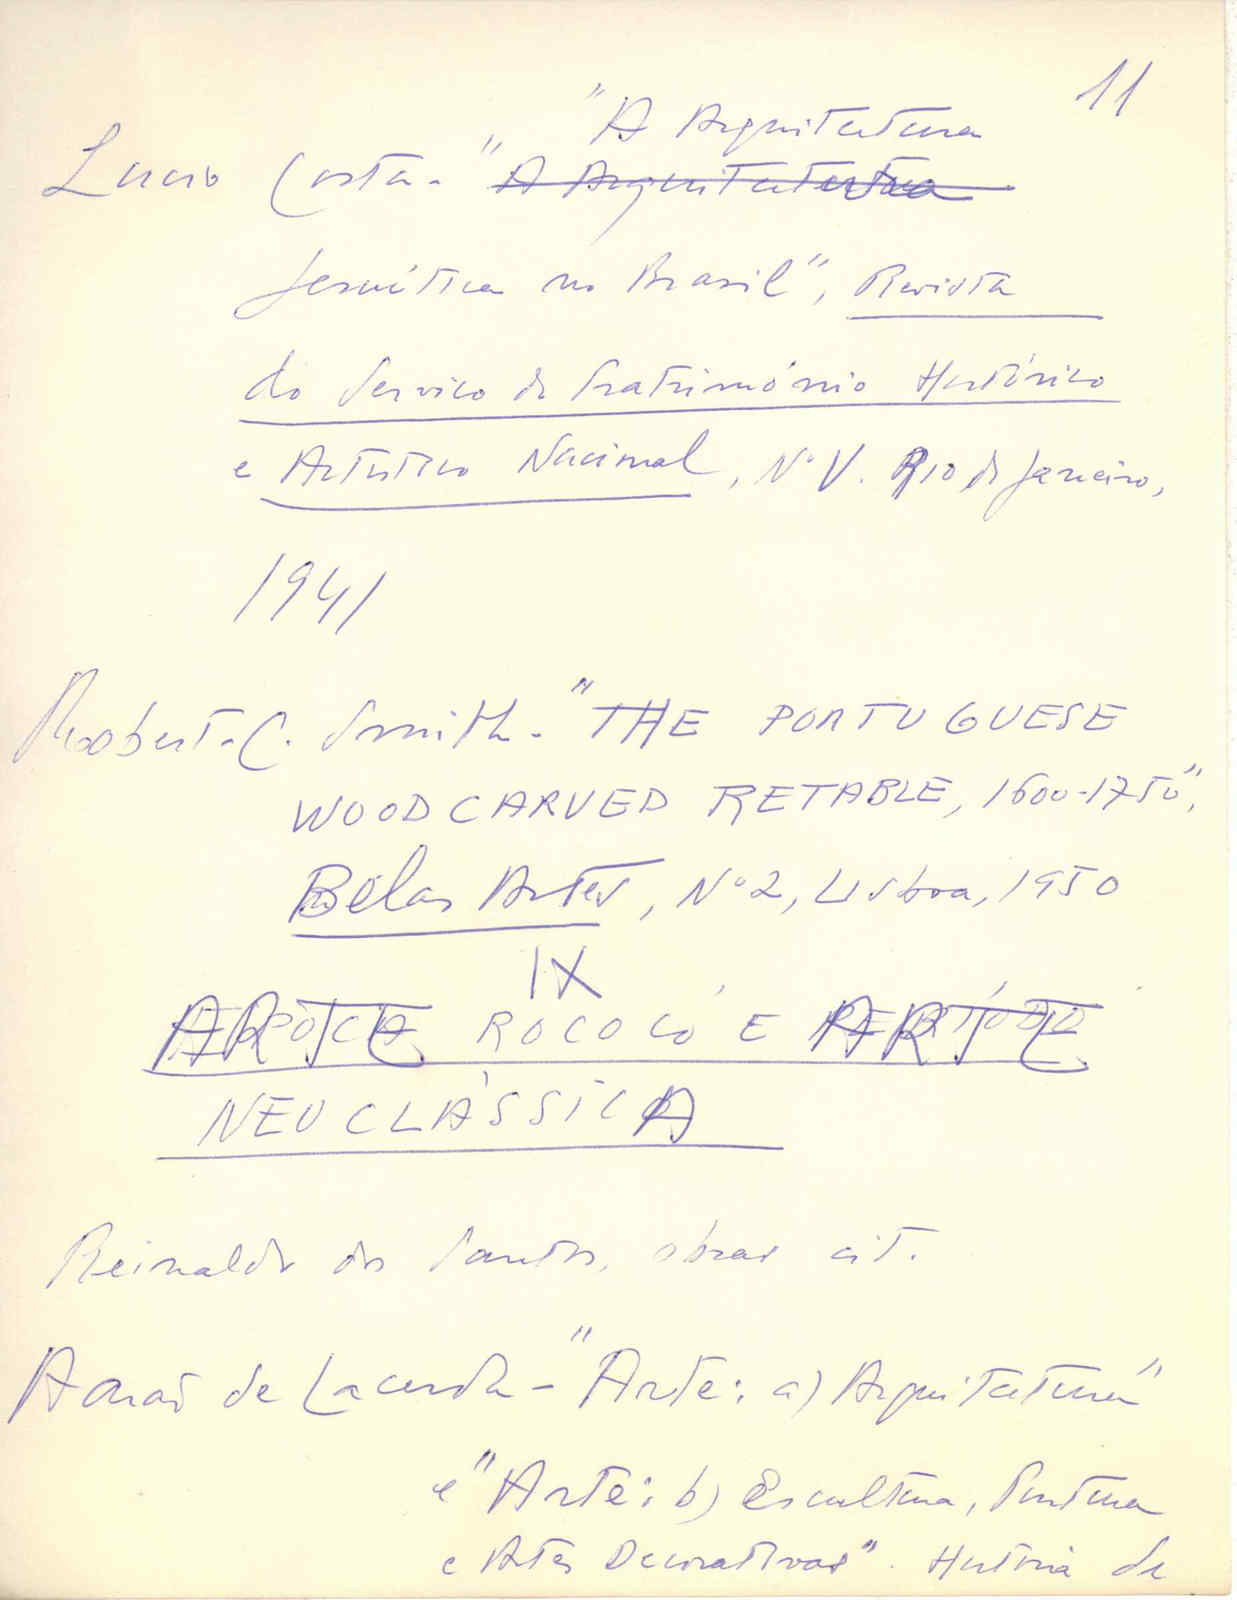 11
"A Arquitectura
Lucio Costa - " A Arquitectura
Jesuítica no Brasil", Revista
do Serviço do Património Histórico
e Artístico Nacional, Nº V. Rio de Janeiro,
1941
Robert C. Smith - "THE PORTUGUESE
WOODCARVED RETABLE, 1600-1750",
Belas Artes, Nº 2, Lisboa, 1950
IX
ARTE ROCOCÓ E ARTE
NEOCLÁSSICA
Reinaldo dos Santos, obras cit.
Aarão de Lacerda - "Arte: a) Arquitectura"
e "Arte: b) Escultura, Pintura
e Artes Decorativas". História da